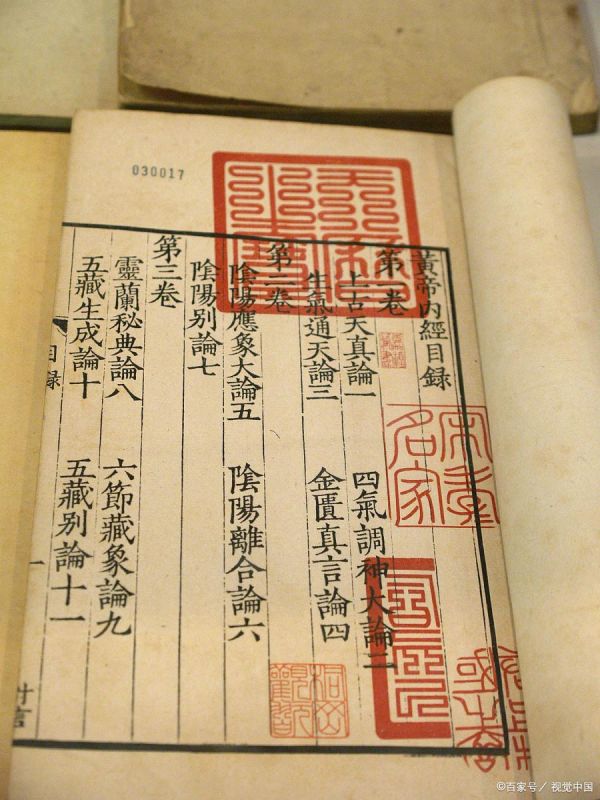 030017
黃帝內經目錄
第一卷
上古天真論一 四氣調神大論二
生氣通天論三 金匱真言論四
第二卷
陰陽應象大論五 陰陽離合論六
陰陽別論七
第三卷
靈蘭秘典論八 六節藏象論九
五藏生成論十 五藏別論十一
目錄
宋本
名家
©百家号／视觉中国